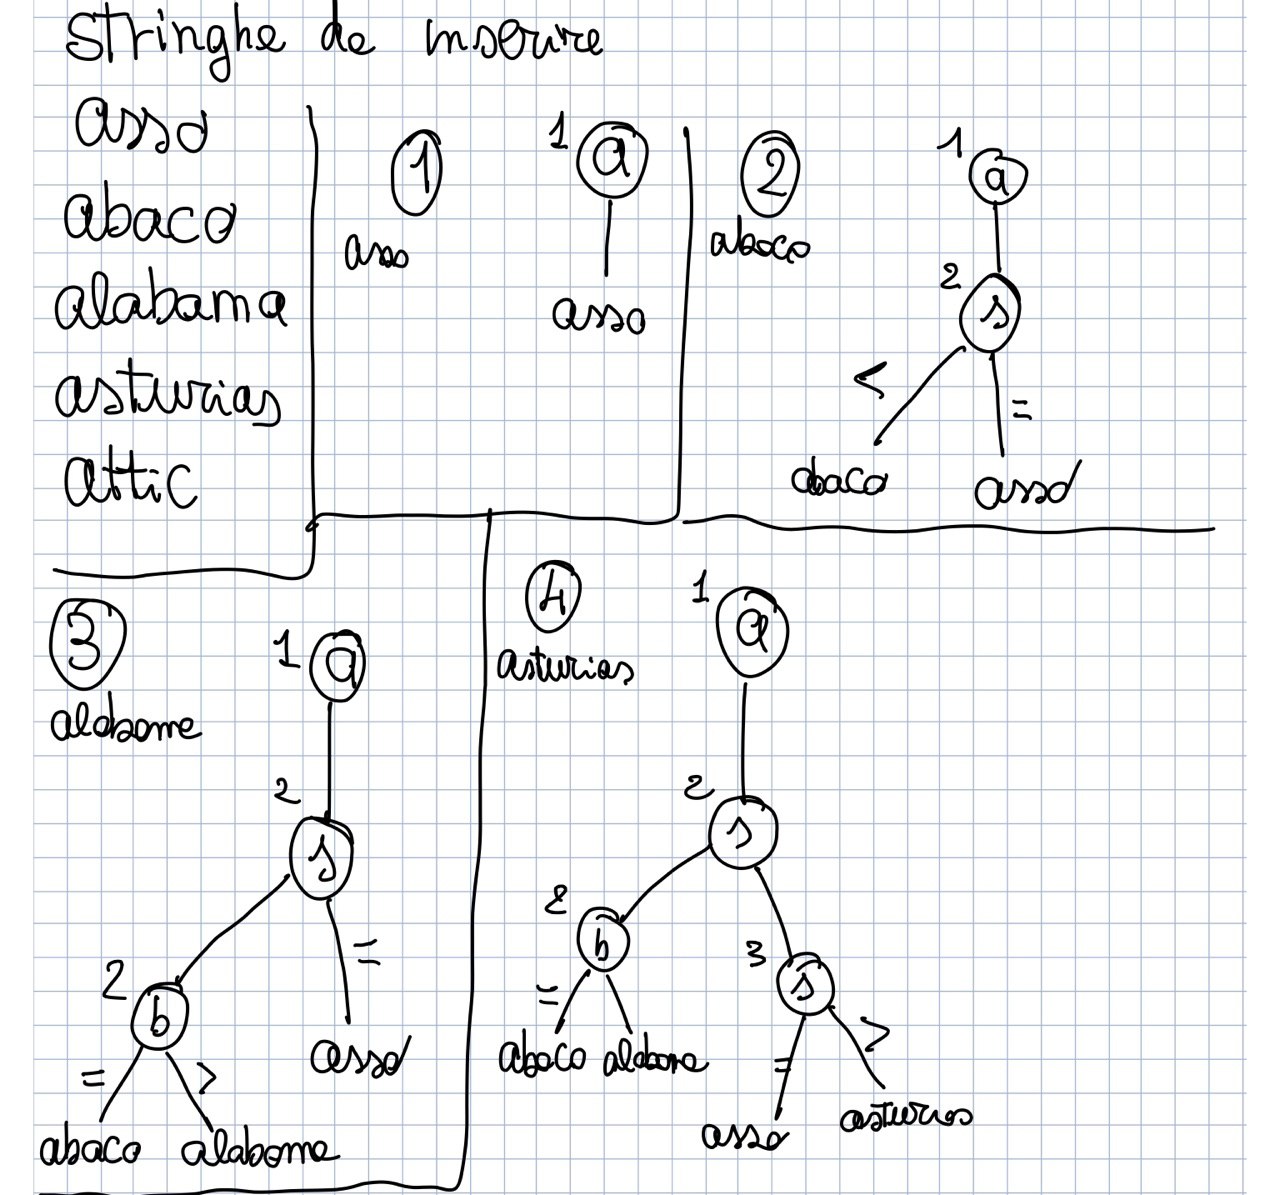 Stringhe da inserire
asso
abaco
alabama
asturias
attic
1
asso
1 a
asso
2
abaco
1 a
2 s
< =
abaco asso
3
alabama
1 a
2 s
=
2 b
asso
= >
abaco alabama
4
asturias
1 a
2 s
2 b
3 s
= >
abaco alabama
=
asso asturias